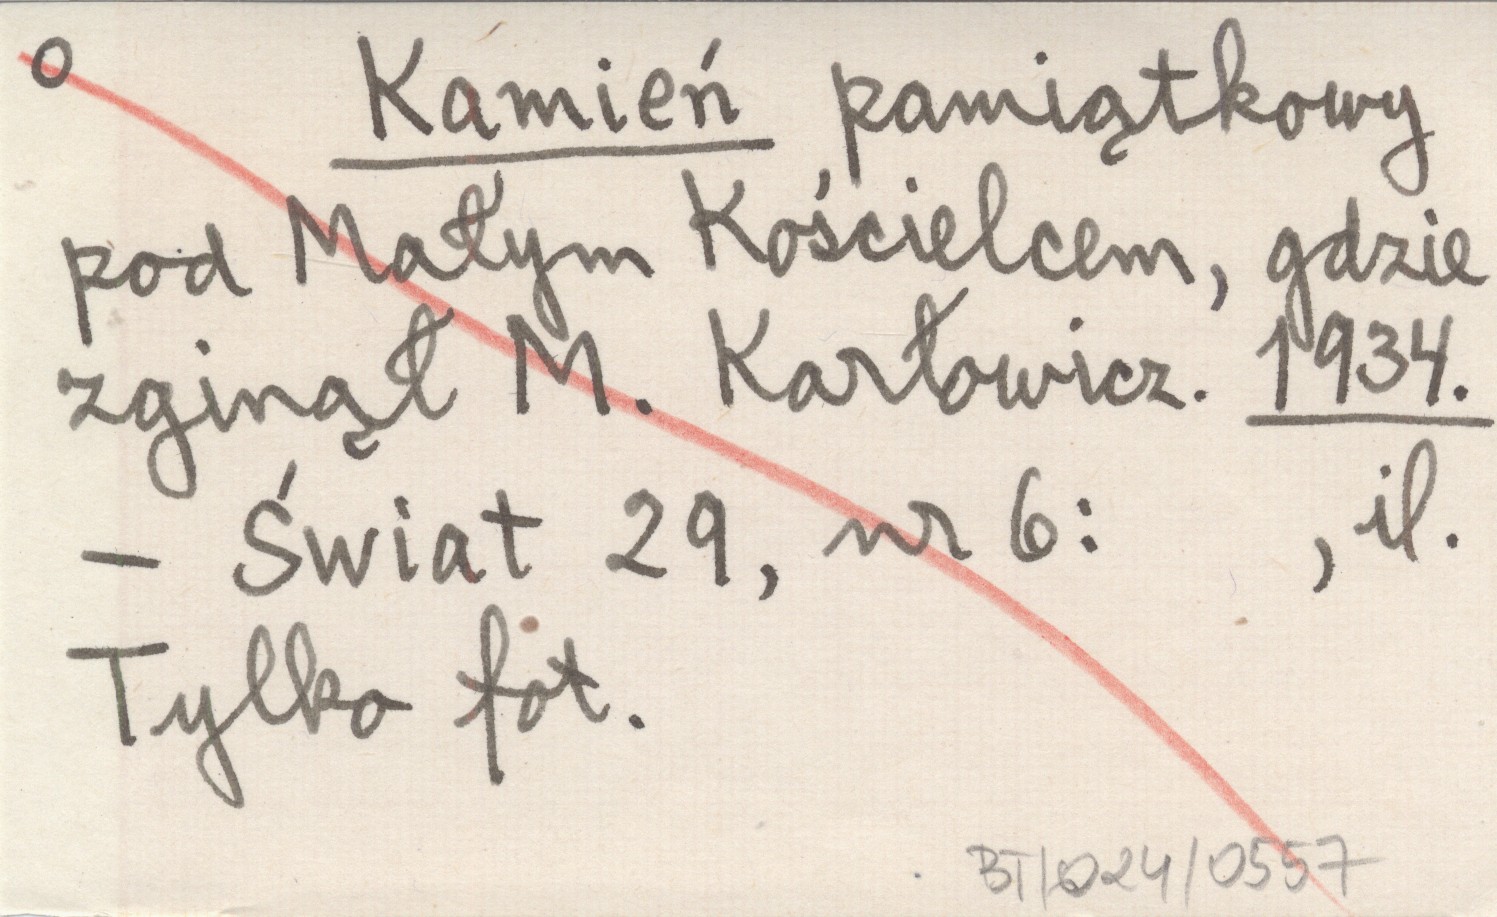 o Kamień pamiątkowy
pod Małym Kościelcem, gdzie
zginął M. Karłowicz. 1934.
– Świat 29, nr 6: , il.
Tylko fot.
BT/024/0557